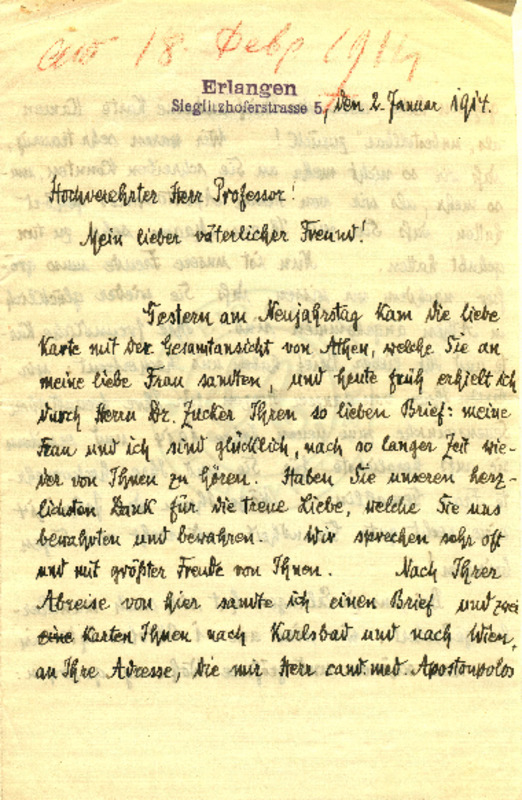 18. Февр 1914
Erlangen
Sieglitzhoferstrasse 5, den 2. Januar 1914.
Hochverehrter Herr Professor!
Mein lieber väterlicher Freund!
Gestern am Neujahrstag kam die liebe
Karte mit der Gesamtansicht von Athen, welche Sie an
meine liebe Frau sandten, und heute früh erhielt ich
durch Herrn Dr. Zucker Ihren so lieben Brief: meine
Frau und ich sind glücklich, nach so langer Zeit wie-
der von Ihnen zu hören. Haben Sie unseren herz-
lichsten Dank für die treue Liebe, welche Sie uns
bewahrten und bewahren. Wir sprechen sehr oft
und mit größter Freude von Ihnen. Nach Ihrer
Abreise von hier sandte ich einen Brief und zwei
eine Karten Ihnen nach Karlsbad und nach Wien,
an Ihre Adresse, die mir Herr cand. med. Apostoupolos